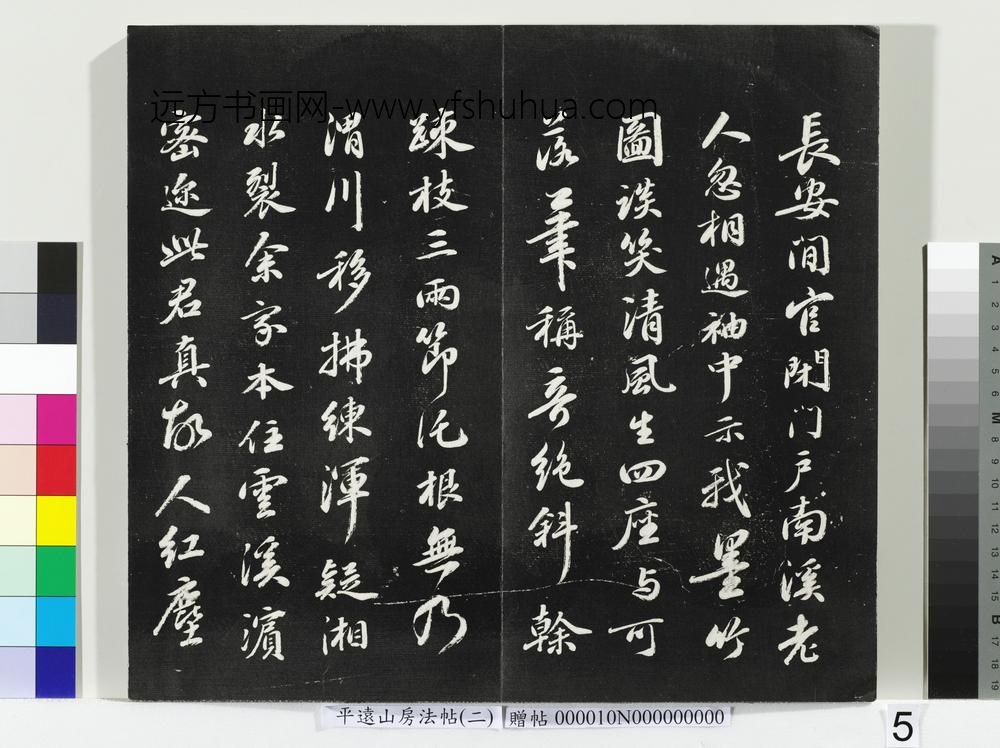 長安閒官閉門戶南溪老
人忽相遇袖中示我墨竹
圖談笑清風生四座與可
落筆稱奇絶斜幹
疎枝三兩節託根無乃
渭川移拂練渾疑湘
水裂余家本住雲溪濵
密迩此君真故人紅塵
远方书画网-www.yfshuhua.com
平遠山房法帖(二)
贈帖 000010N000000000
5
A 1 2 3 4 5 6 M 8 9 10 11 12 13 14 15 B 17 18 19